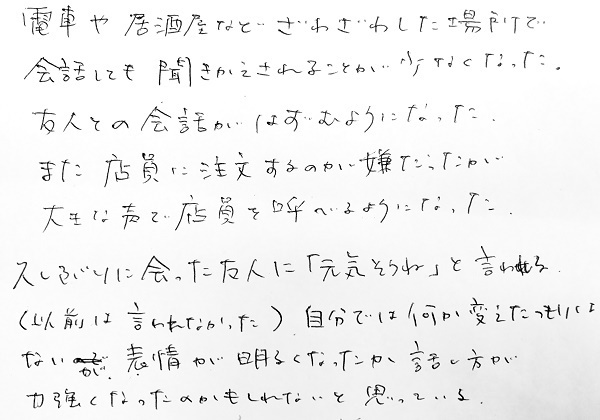 電車や居酒屋などざわざわした場所で
会話しても聞きかえされることが少なくなった。
友人との会話がはずむようになった.
また店員に注文するのが嫌だったが
大きな声で店員を呼べるようになった.
久しぶりに会った友人に「元気そうね」と言われる.
(以前は言われなかった) 自分では何か変えたつもりは
ないが. 表情が明るくなったか 話し方が
力強くなったのかもしれないと思っている.